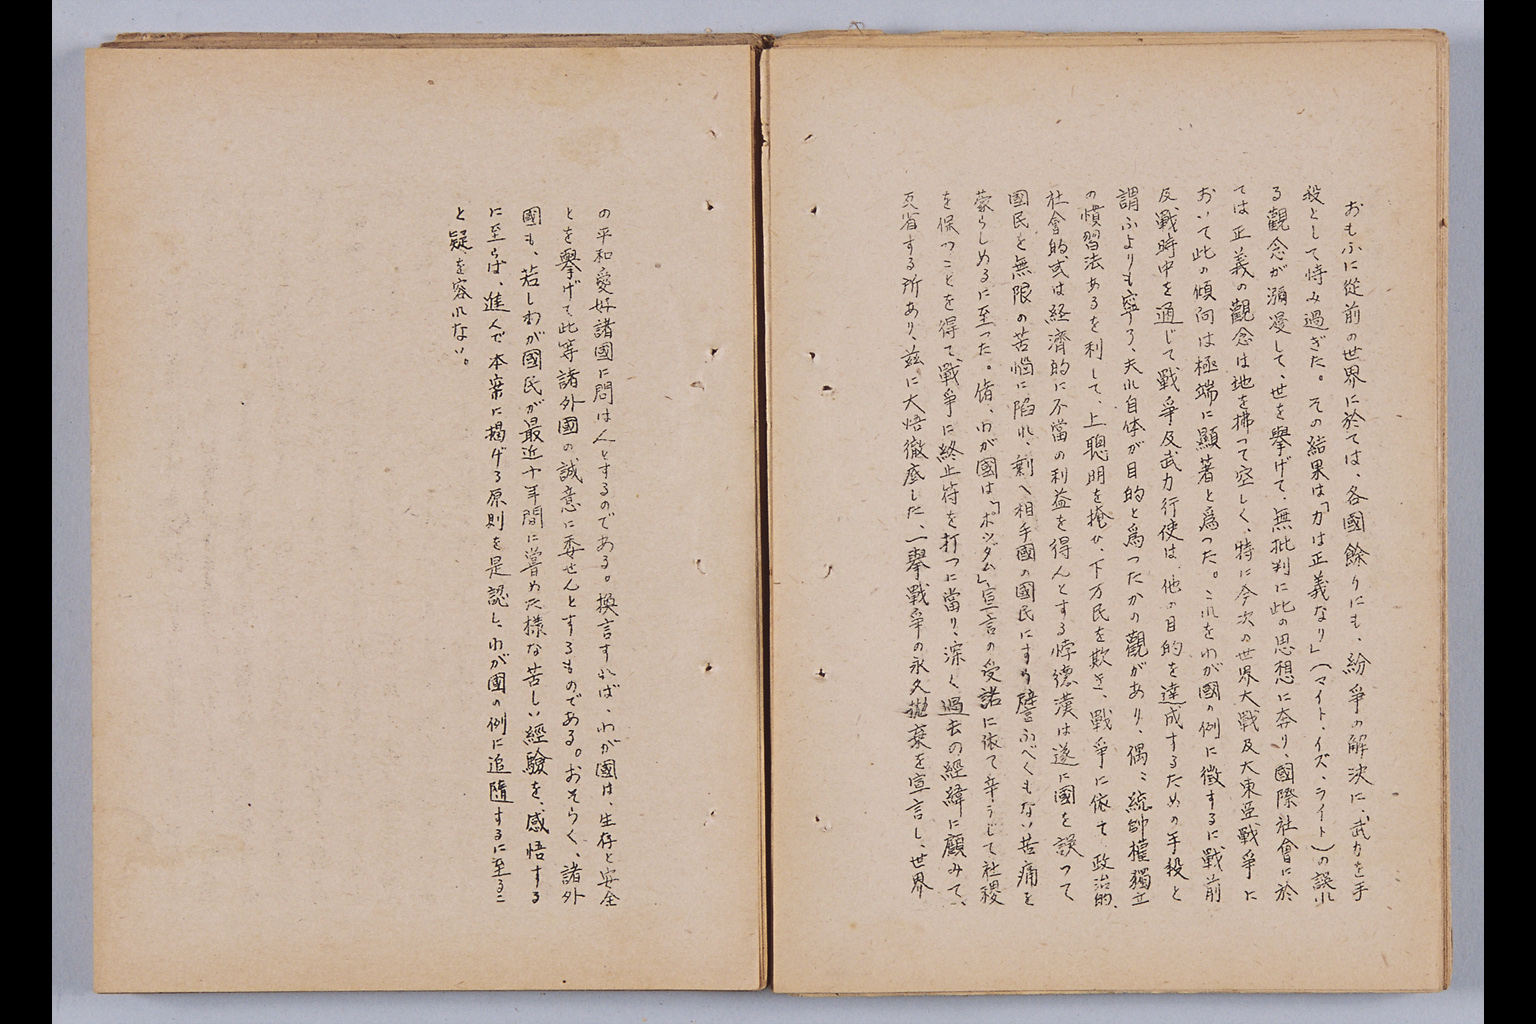 おもふに從前の世界に於ては、各國餘りにも、紛爭の解決に、武力を手
段として恃み過ぎた。その結果は「力は正義なり」(マイト・イズ・ライト)の誤れ
る觀念が瀰漫して、世を擧げて、無批判に此の思想に奔り、國際社會に於
ては正義の觀念は地を拂つて空しく、特に今次の世界大戰及大東亞戰爭に
おいて此の傾向は極端に顯著と爲つた。これをわが國の例に徵するに戰前
及戰時中を通じて戰爭及武力行使は、他の目的を達成するための手段と
謂ふよりも寧ろ、夫れ自体が目的と爲つたかの觀があり、偶〻統帥權獨立
の慣習法あるを利して、上聰明を掩ひ、下万民を欺き、戰爭に依て政治的、
社會的或は経濟的に不當の利益を得んとする悖德漢は遂に國を誤つて
國民を無限の苦惱に陷れ、剩へ相手國の國民にすら譬ふべくもない苦痛を
蒙らしめるに至つた。偖、わが國は、「ポツダム」宣言の受諾に依て辛うじて社稷
を保つことを得て、戰爭に終止符を打つに當り、深く過去の經緯に顧みて、
反省する所あり、茲に大悟徹底した、一擧戰爭の永久抛棄を宣言し、世界
の平和愛好諸國に問はんとするのである。換言すれば、わが國は、生存と安全
とを擧げて此等諸外國の誠意に委せんとするものである。おそらく、諸外
國も、若しわが國民が最近十年間に嘗めた樣な苦しい經驗を、感悟する
に至らば、進んで本案に揭げる原則を是認し、わが國の例に追隨するに至るこ
と疑を容れない。